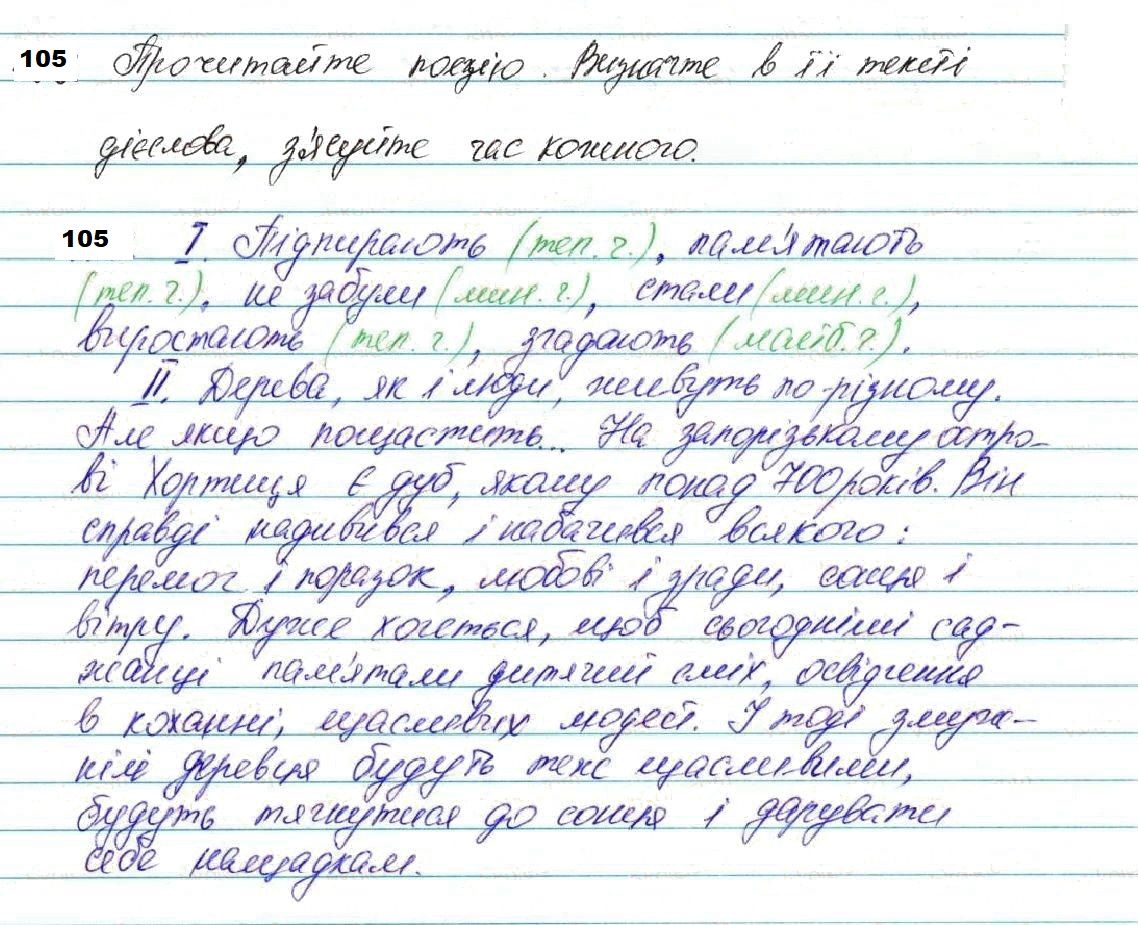 105 Прочитайте поезію. Визначте в її тексті
дієслова, з'ясуйте час кожного.
105 I. Підпирають (теп. ч.), пам'ятають
(теп. ч.), не забули (мин. ч.), стали (мин. ч.),
виростають (теп. ч.), згадають (майб. ч.).
II. Дерева, як і люди, живуть по-різному.
Але якщо пощастить... На запорізькому остро-
ві Хортиця є дуб, якому понад 700 років. Він
справді надивився і набачився всякого:
перемог і поразок, любові і зради, сонця і
вітру. Дуже хочеться, щоб сьогоднішні сад-
жанці пам'ятали дитячий сміх, освідчення
в коханні, щасливих людей. І тоді
деревця будуть теж щасливими,
будуть тягнутися до сонця і дарувати
себе нащадкам.